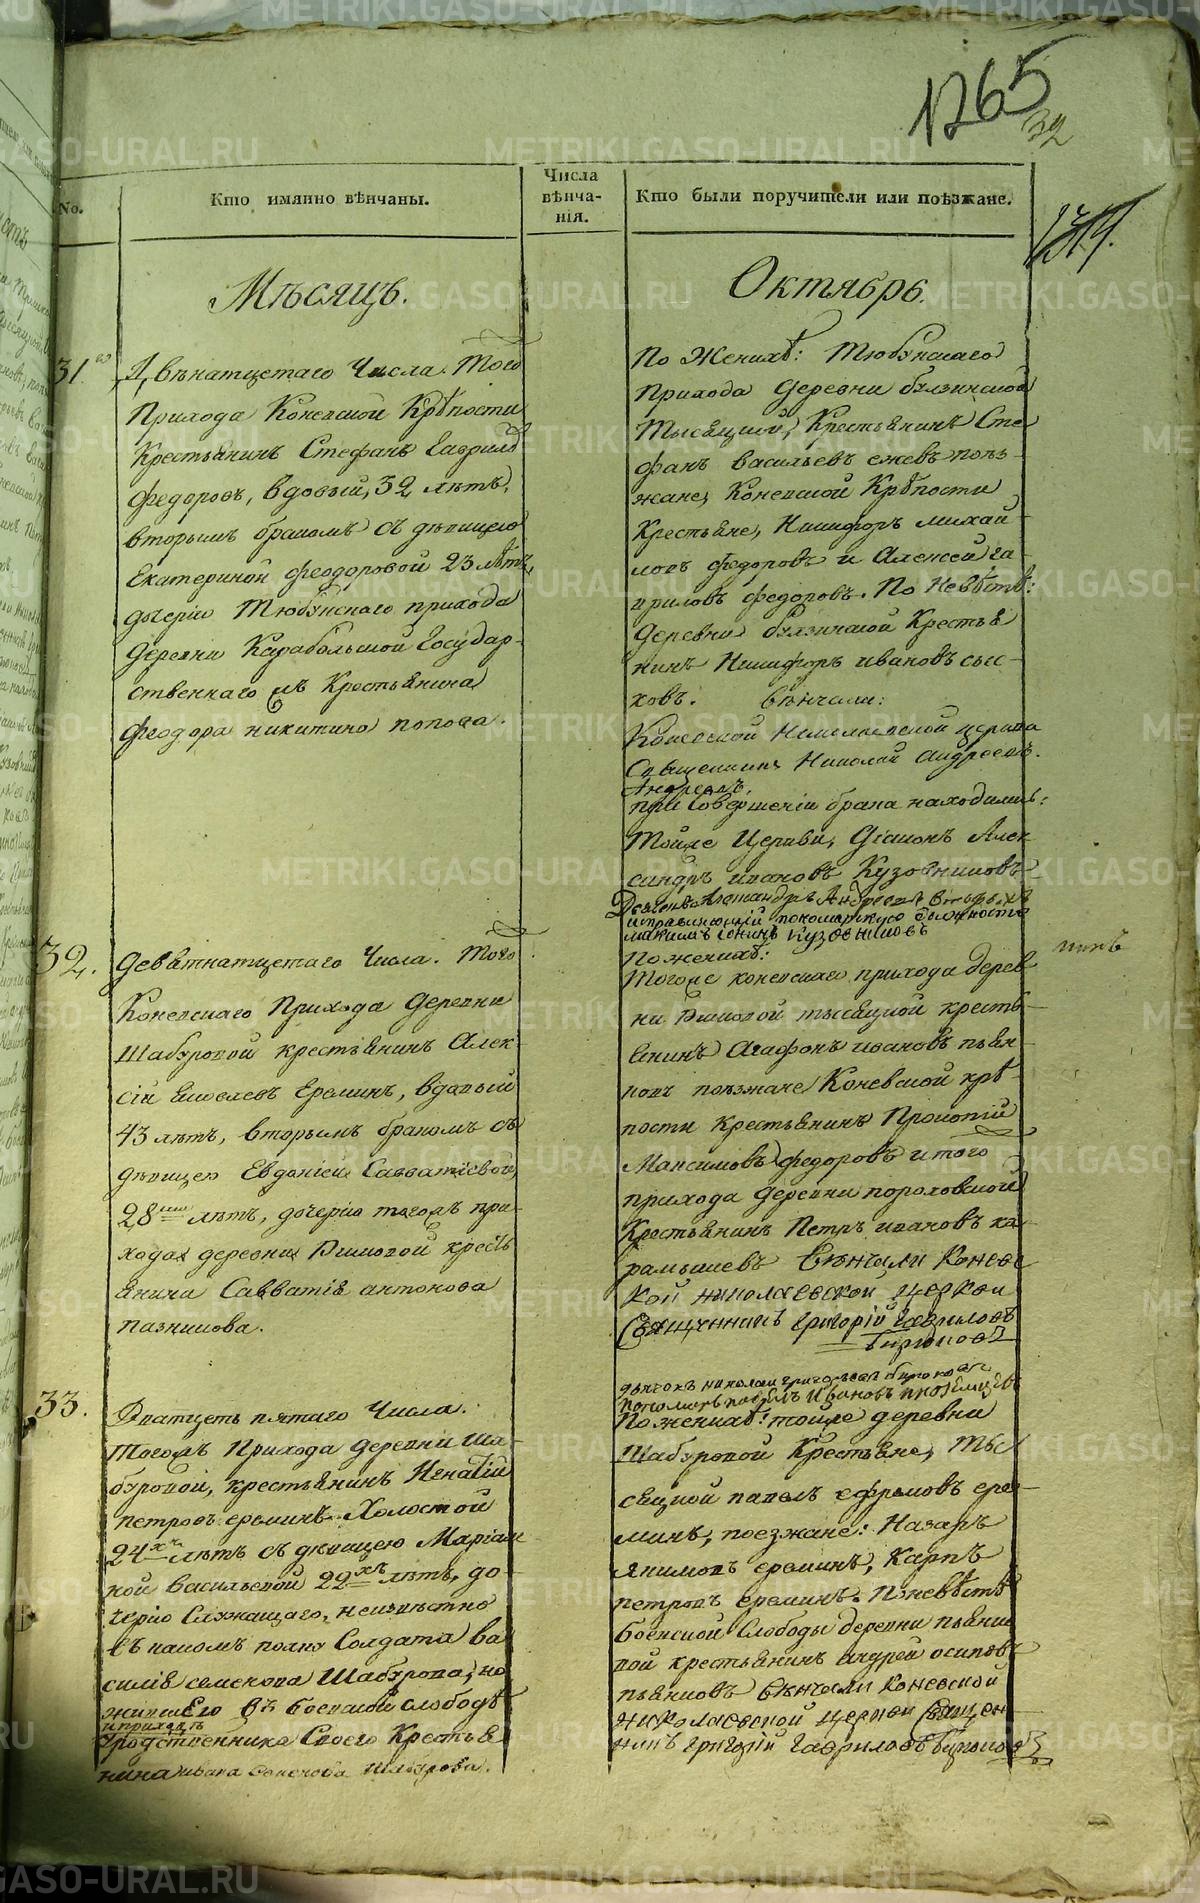 1265
32
1314.
No.
Кто имянно вѣнчаны.
Числа
вѣнча-
нія.
Кто были поручители или поѣзжане.
Мѣсяцъ.
Октябрь.
31.
Двѣнатцетаго Числа. Того
Прихода Коневской Крѣпости
Крестьянинъ Стефанъ Гаврило
федоровъ, вдовый, 32 лѣтъ,
вторымъ бракомъ съ дѣвицею
Екатериной феодоровой 23 лѣтъ,
дочерію Тюбукскаго прихода
деревни Карабольшой Государ-
ственнаго Крестьянина
феодора никитина попова.
По Женихѣ: Тюбукскаго
Прихода деревни булзинской
Тысяцкій, Крестьянинъ Сте
фанъ васильевъ ежевъ поѣз-
жане, Коневской Крѣпости
Крестьяне, Никифоръ михай-
ловъ федоровъ и Алексей га-
вриловъ федоровъ. По Невѣстѣ:
деревни булзинской Крестья
нинъ Никифоръ ивановъ сыс-
ковъ. Вѣнчали:
Коневской Николаевской церкви
Священникъ Николай андреевъ.
Андреевъ.
при совершеніи брака находились:
Тойже Церкви, Діаконъ Алек
сандръ ивановъ Кузовниковъ
Дьячекъ Александръ Андреевъ
исправляющій пономарскую должность
максимъ іонинъ Кузовниковъ
32.
девятнатцетаго Числа. Того
Коневскаго Прихода деревни
Шабуровой крестьянинъ Алек
сій Еремин, вдовый
43 лѣтъ, вторымъ бракомъ съ
дѣвицею Евдокіею Савватіевой,
28ми лѣтъ, дочерію тогожъ при-
хода деревни крестья
янина Савватія антонова
пазникова.
По женихѣ:
Тогоже коневскаго прихода дерев
ни тысяцкой кресть-
янинъ Агафонъ ивановъ пьян
ковъ поѣзжане Коневской крѣ-
пости крестьянинъ Прокопій
Максимовъ федоровъ и того
прихода деревни пороховской
Крестьянинъ Петръ ивановъ ка-
рамышевъ Вѣнчали Коневс
кой николаевской церкви
Священникъ григорій Гавриловъ
Бирюковъ
дьячокъ николай григорьевъ бирюковъ
33.
Дватцеть пятаго Числа.
Тогожъ Прихода деревни Ша-
буровой, крестьянинъ Игнатій
петровъ еремінъ Холостой
24хъ лѣтъ съ дѣвицею Маріам
ной васильевой 22хъ лѣтъ, до
черію Служащаго, неизвѣстно
въ какомъ полку Солдата ва
силія семенова Шабурова, но
жившею въ Боевской слободѣ
и приходѣ
Сродственника Своего Крестья
нина ивана семенова Шабурова.
По женихѣ: тойже деревни
Шабуровой Крестьяне, Тыс
сяцкой павелъ ефремовъ ере-
минъ, поезжане: Назаръ
якимовъ ереминъ, Карпъ
петровъ ереминъ. По невѣстѣ
Боевской Слободы деревни пьянко
вой крестьянинъ андрей осиповъ
пьянковъ Вѣнчали Коневской
николаевской церкви Священ
никъ григорій Гавриловъ Бирюковъ